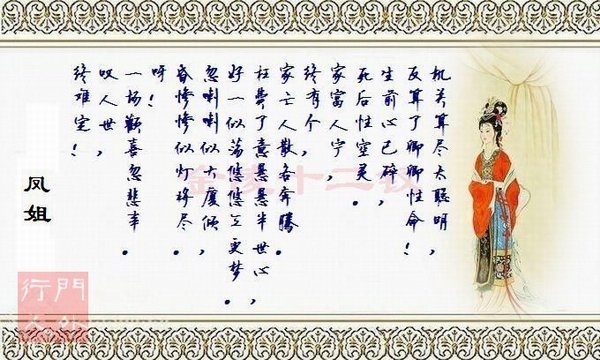 机关算尽太聪明，
反算了卿卿性命！
生前心已碎，
死后性空灵。
家富人宁，
终有个，
家亡人散各奔腾。
枉费了意悬悬半世心，
好一似荡悠悠三更梦。
忽喇喇似大厦倾，
昏惨惨似灯将尽。
呀！
一场歡喜忽悲辛。
叹人世，
终难定！
凤姐
金陵十二钗